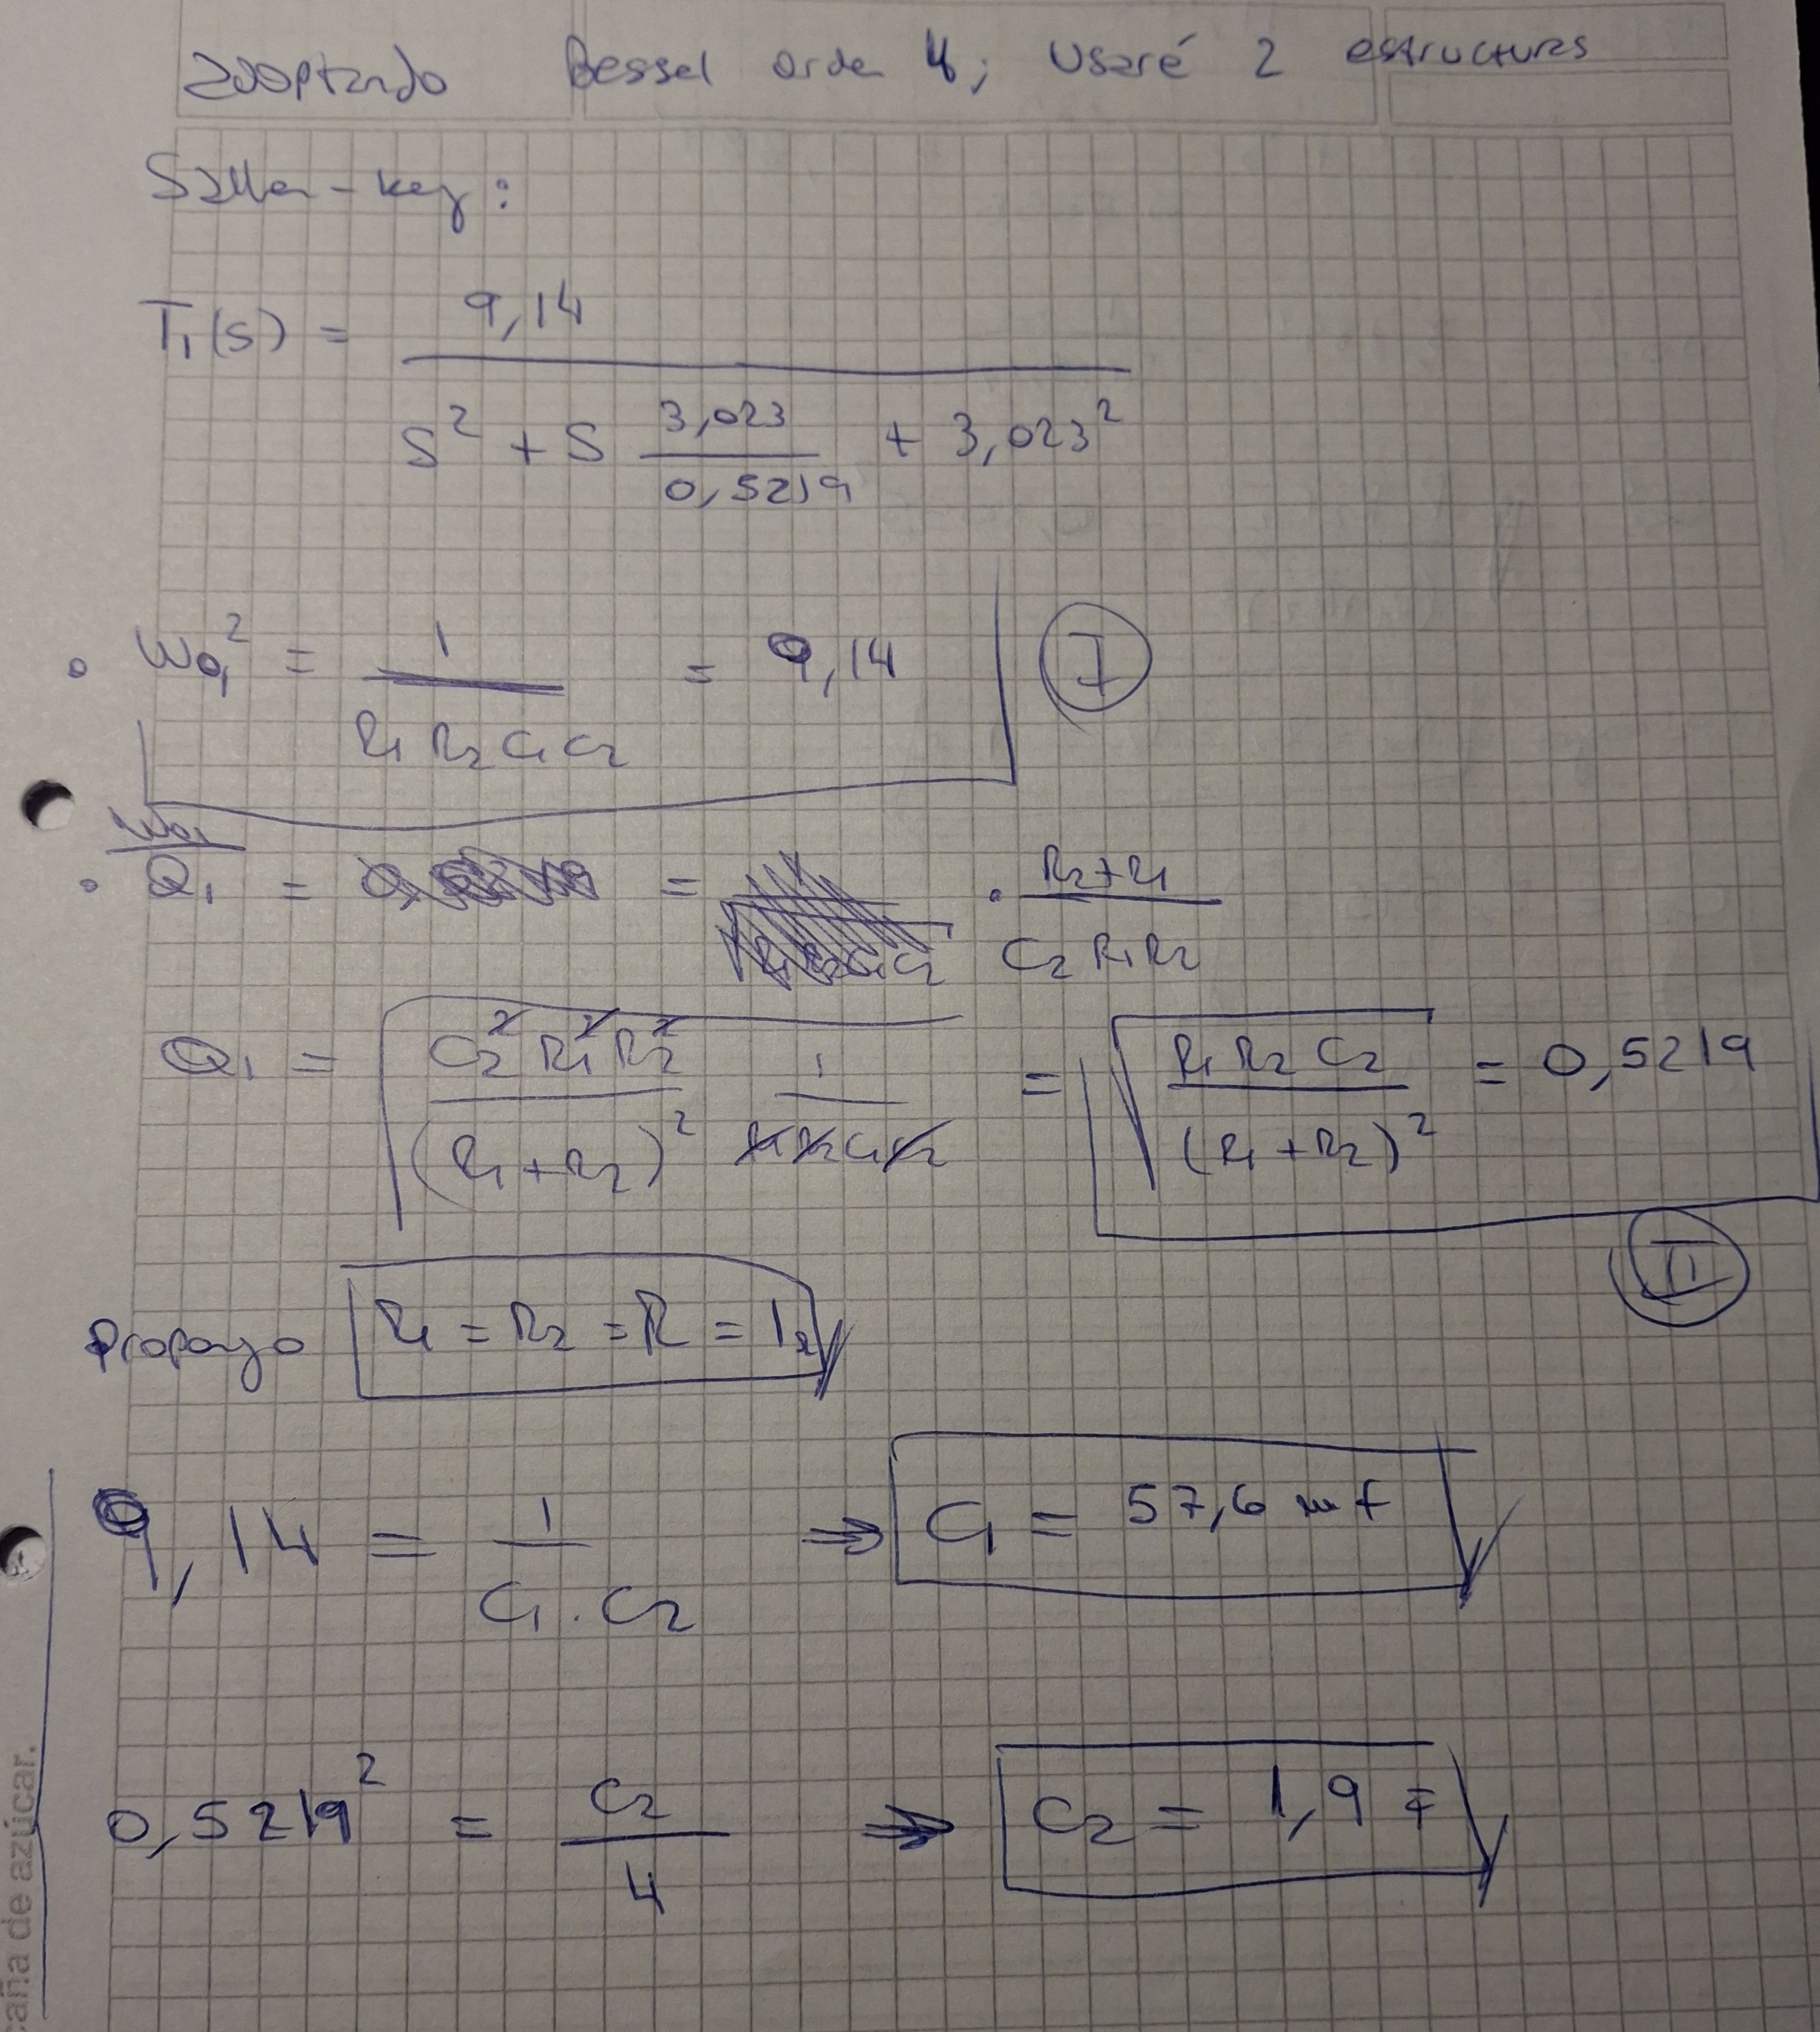 adoptando Bessel orden 4; Usaré 2 estructuras
Sallen-key:
T₁(s) = 9,14 / (s² + s 3,023/0,5219 + 3,023²)
• ω₀₁² = 1 / (R₁ R₂ C₁ C₂) = 9,14 (I)
• ω₀₁/Q₁ = = • (R₂+R₁) / (C₂ R₁ R₂)
Q₁ = √( C₂² R₁² R₂² / (R₁+R₂)² 1 / (R₁ R₂ C₁ C₂) ) = √( R₁ R₂ C₂ / (R₁+R₂)² ) = 0,5219 (II)
Propongo R₁ = R₂ = R = 1
9,14 = 1 / (C₁ . C₂) ⇒ C₁ = 57,6 mf
0,5219² = C₂ / 4 ⇒ C₂ = 1,9 F
caña de azúcar.